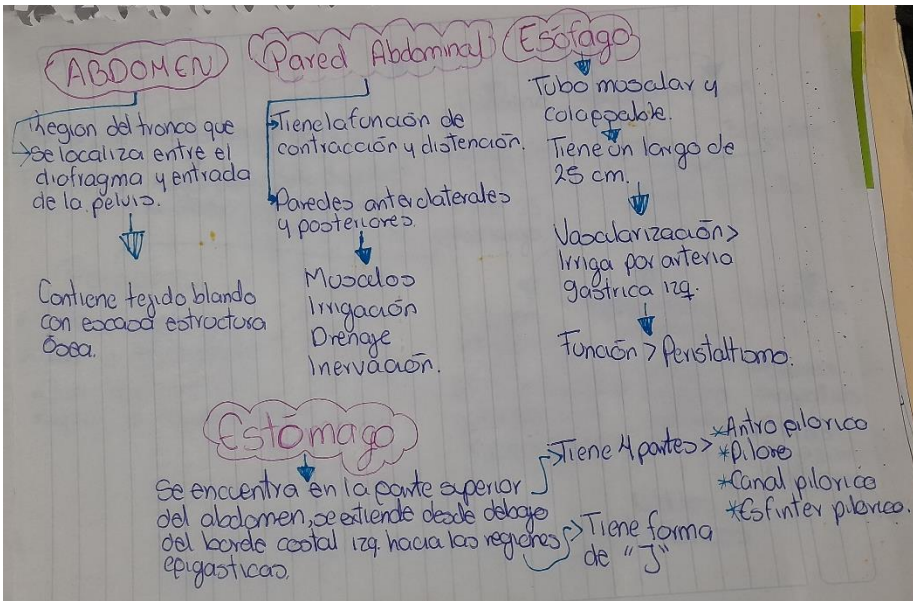 ABDOMEN
Region del tronco que
se localiza entre el
diafragma y entrada
de la pelvis.
Contiene tejido blando
con escasa estructura
ósea.
Pared Abdominal
Tiene la función de
contracción y distención.
Paredes anterolaterales
y posteriores.
Musculos
Irrigación
Drenaje
Inervación.
Esófago
Tubo muscular y
colappable.
Tiene un largo de
25 cm.
Vascularización>
Irriga por arteria
gástrica izq.
Función > Peristaltismo.
Estómago
Se encuentra en la parte superior
del abdomen, se extiende desde debajo
del borde costal izq. hacia las regiones
epigasticas.
Tiene 4 partes>
*Antro pilorico
*Piloro
*Canal pilorico
*Esfinter pilorico.
Tiene forma
de "J"